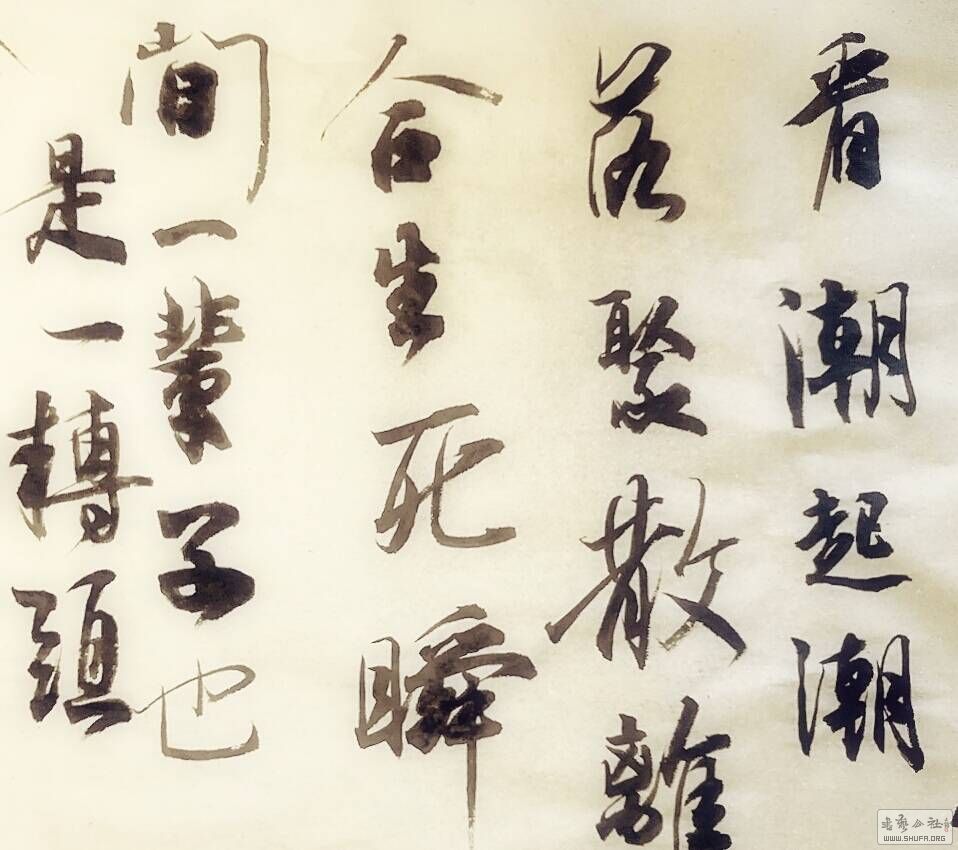 看潮起潮
落聚散離
合生死瞬
間一輩子也
是一轉頭
WWW.SHUFA.ORG